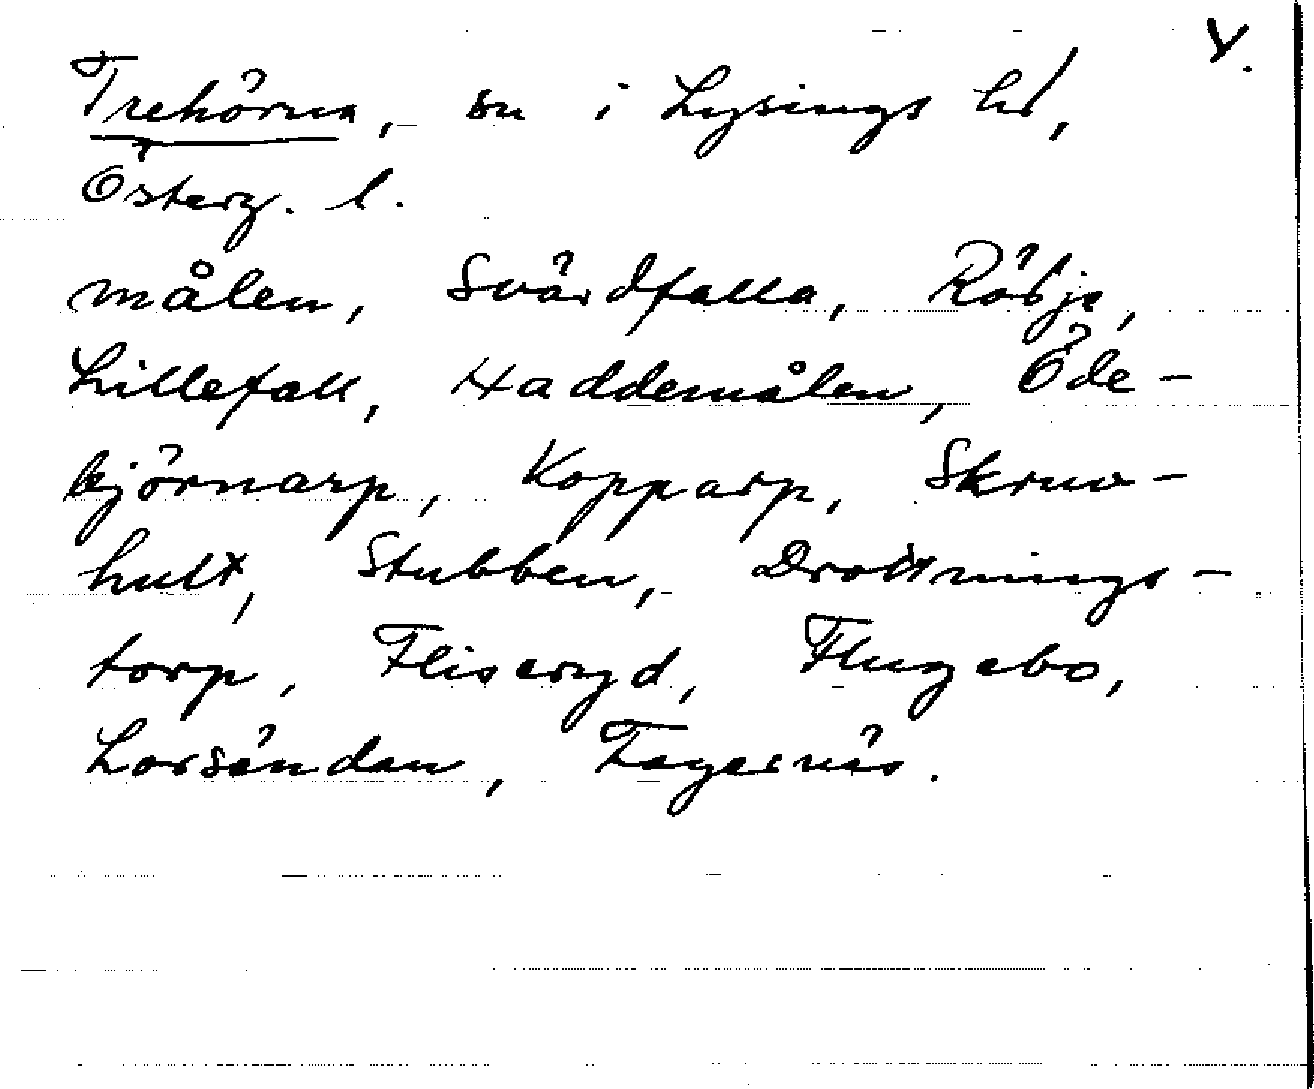 V.
Trehörna, sn i Lysings hd,
Österg. l.
målen, Svärdfalla, Rödje,
Lillefall, Haddemålen, Öde-
björnarp, Kopparp, Skruv-
hult, Stubben, Drottnings-
torp, Fliseryd, Flugebo,
Lorsändan, Fagernäs.